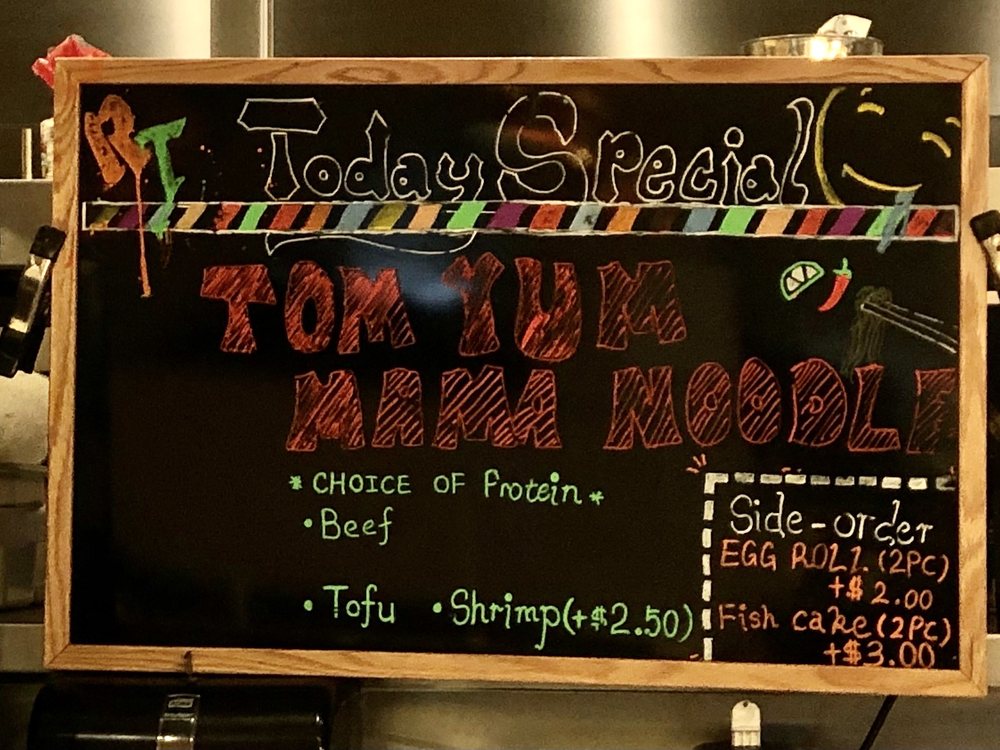 RJ Today Special
TOM YUM
MAMA NOODLE
* CHOICE OF Protein *
• Beef
• Tofu • Shrimp (+$2.50)
Side-order
EGG ROLL (2PC)
+$2.00
Fish cake (2PC)
+$3.00